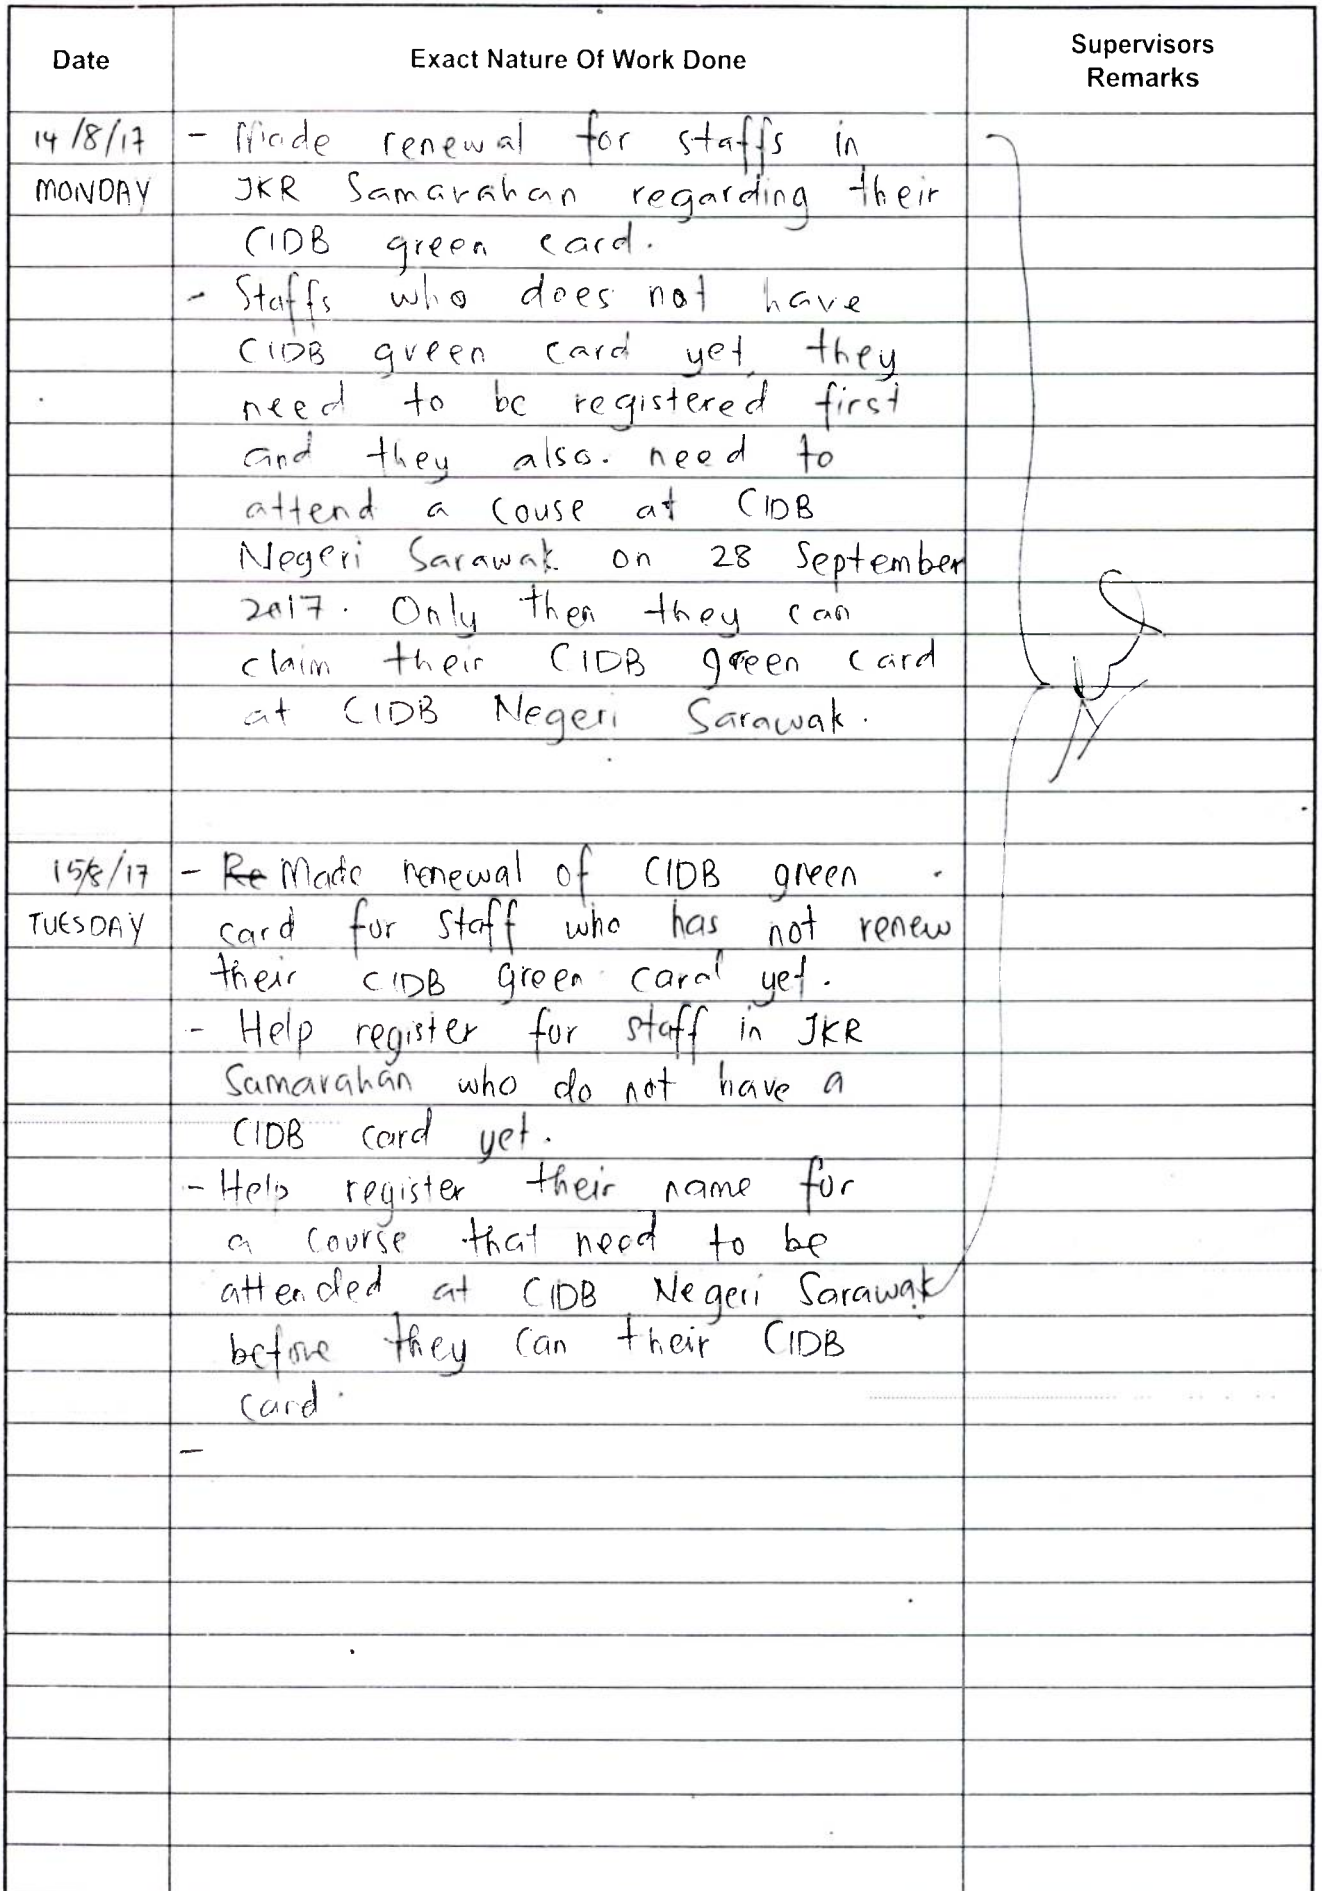 Date Exact Nature Of Work Done Supervisors
Remarks
14/8/17 - Made renewal for staffs in
MONDAY JKR Samarahan regarding their
CIDB green card.
- Staffs who does not have
CIDB green card yet, they
need to be registered first
and they also. need to
attend a couse at CIDB
Negeri Sarawak on 28 September
2017. Only then they can
claim their CIDB green card
at CIDB Negeri Sarawak.
15/8/17 - Re Made renewal of CIDB green
TUESDAY card for staff who has not renew
their CIDB green card yet.
- Help register for staff in JKR
Samarahan who do not have a
CIDB card yet.
- Help register their name for
a course that need to be
attended at CIDB Negeri Sarawak
before they can their CIDB
card.
-